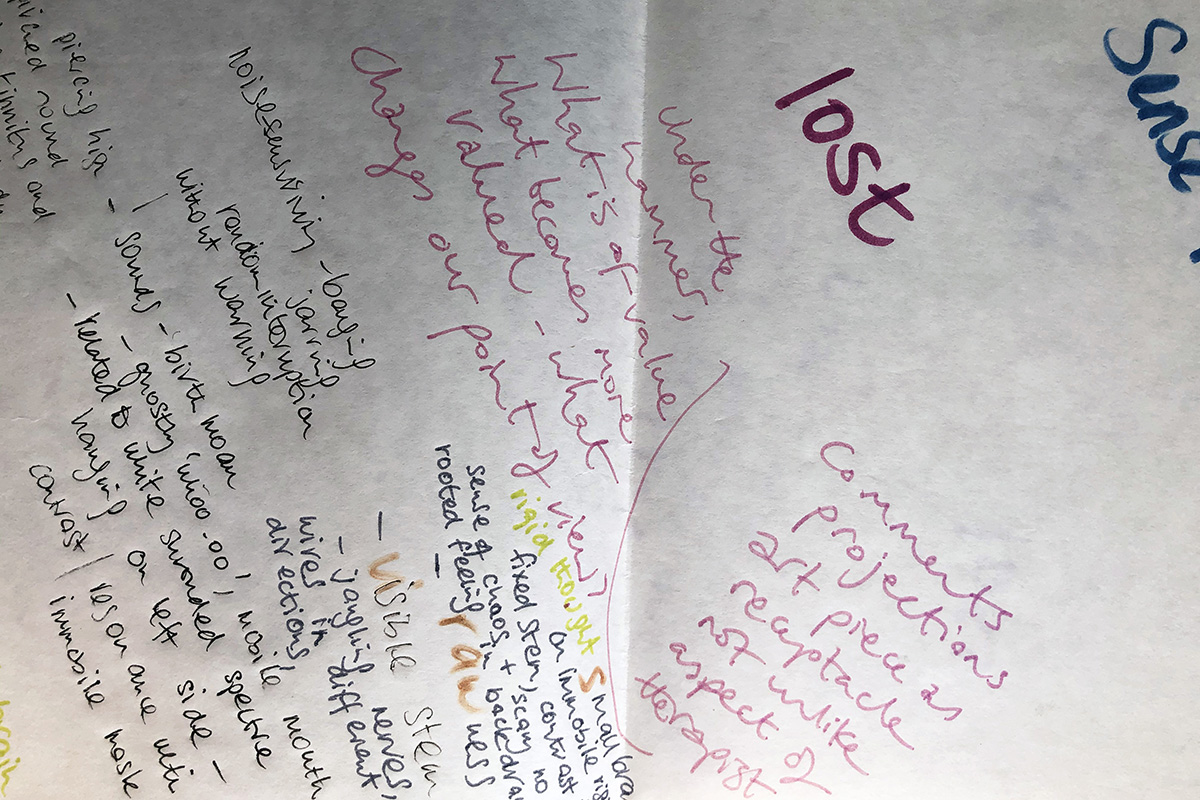 Sense
lost
under the
hammer,
What is of value
What becomes more
valued - what
Changes our point of view?
Comments
projections
art piece as
receptacle
not unlike
aspect of
therapist
rigid thought
small
on immobile
fixed stem, contrast
sense of chaos, scary no
rooted feeling +
rawness
- visible stem
- jangling nerves,
wires in different
directions
noise sensitivity - banging
jarring
random interruption
without warning
piercing high
sound
tinnitus and
- sounds - birth moan
- ghostly 'whoo.oo', mobile mouth
- related to white shrouded spectre
hanging on left side -
contrast / resonance with
immobile mask
brain